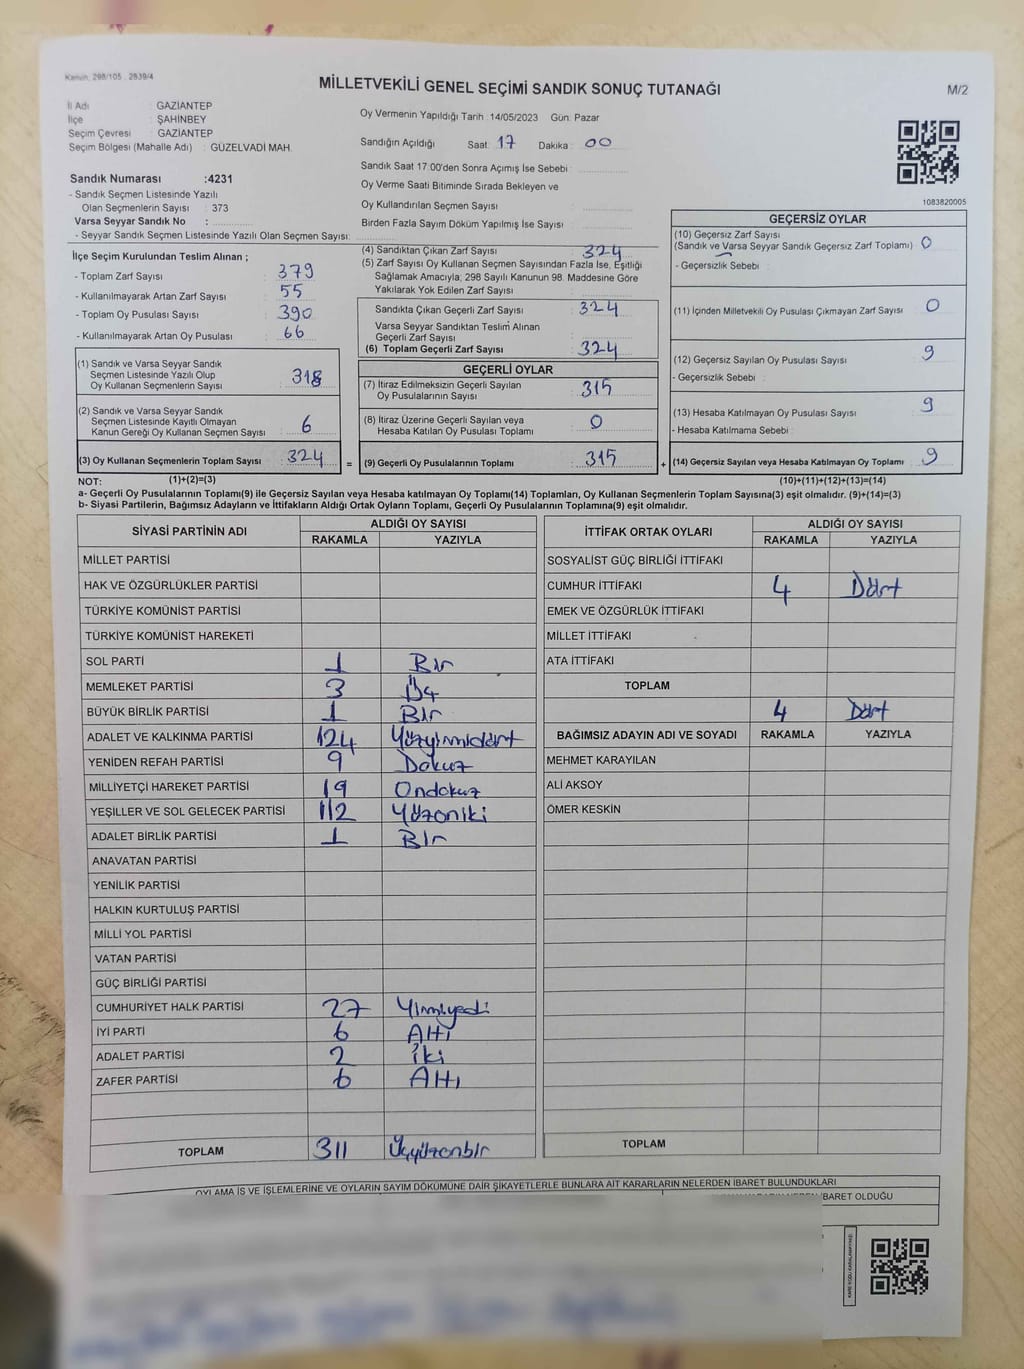 Kanun: 298/105 , 2839/4
MİLLETVEKİLİ GENEL SEÇİMİ SANDIK SONUÇ TUTANAĞI
M/2
İl Adı : GAZİANTEP
İlçe : ŞAHİNBEY
Seçim Çevresi : GAZİANTEP
Seçim Bölgesi (Mahalle Adı) : GÜZELVADİ MAH.
Oy Vermenin Yapıldığı Tarih :14/05/2023 Gün: Pazar
Sandığın Açıldığı Saat: 17 Dakika : 00
Sandık Saat 17:00'den Sonra Açımış İse Sebebi :
Oy Verme Saati Bitiminde Sırada Bekleyen ve
Oy Kullandırılan Seçmen Sayısı :
Birden Fazla Sayım Döküm Yapılmış İse Sayısı :
1083820005
Sandık Numarası :4231
- Sandık Seçmen Listesinde Yazılı
Olan Seçmenlerin Sayısı : 373
Varsa Seyyar Sandık No :
- Seyyar Sandık Seçmen Listesinde Yazılı Olan Seçmen Sayısı:
İlçe Seçim Kurulundan Teslim Alınan ;
- Toplam Zarf Sayısı : 379
- Kullanılmayarak Artan Zarf Sayısı : 55
- Toplam Oy Pusulası Sayısı : 390
- Kullanılmayarak Artan Oy Pusulası : 66
(1) Sandık ve Varsa Seyyar Sandık
Seçmen Listesinde Yazılı Olup
Oy Kullanan Seçmenlerin Sayısı : 318
(2) Sandık ve Varsa Seyyar Sandık
Seçmen Listesinde Kayıtlı Olmayan
Kanun Gereği Oy Kullanan Seçmen Sayısı : 6
(3) Oy Kullanan Seçmenlerin Toplam Sayısı : 324
(4) Sandıktan Çıkan Zarf Sayısı : 324
(5) Zarf Sayısı Oy Kullanan Seçmen Sayısından Fazla İse, Eşitliği
Sağlamak Amacıyla; 298 Sayılı Kanunun 98. Maddesine Göre
Yakılarak Yok Edilen Zarf Sayısı :
Sandıkta Çıkan Geçerli Zarf Sayısı : 324
Varsa Seyyar Sandıktan Teslim Alınan
Geçerli Zarf Sayısı :
(6) Toplam Geçerli Zarf Sayısı : 324
GEÇERLİ OYLAR
(7) İtiraz Edilmeksizin Geçerli Sayılan
Oy Pusulalarının Sayısı : 315
(8) İtiraz Üzerine Geçerli Sayılan veya
Hesaba Katılan Oy Pusulası Toplamı : 0
= (9) Geçerli Oy Pusulalarının Toplamı : 315 +
GEÇERSİZ OYLAR
(10) Geçersiz Zarf Sayısı
(Sandık ve Varsa Seyyar Sandık Geçersiz Zarf Toplamı) : 0
- Geçersizlik Sebebi :
(11) İçinden Milletvekili Oy Pusulası Çıkmayan Zarf Sayısı : 0
(12) Geçersiz Sayılan Oy Pusulası Sayısı : 9
- Geçersizlik Sebebi :
(13) Hesaba Katılmayan Oy Pusulası Sayısı : 9
- Hesaba Katılmama Sebebi :
(14) Geçersiz Sayılan veya Hesaba Katılmayan Oy Toplamı : 9
NOT: (1)+(2)=(3) (10)+(11)+(12)+(13)=(14)
a- Geçerli Oy Pusulalarının Toplamı(9) ile Geçersiz Sayılan veya Hesaba katılmayan Oy Toplamı(14) Toplamları, Oy Kullanan Seçmenlerin Toplam Sayısına(3) eşit olmalıdır. (9)+(14)=(3)
b- Siyasi Partilerin, Bağımsız Adayların ve İttifakların Aldığı Ortak Oyların Toplamı, Geçerli Oy Pusulalarının Toplamına(9) eşit olmalıdır.
SİYASİ PARTİNİN ADI ALDIĞI OY SAYISI
RAKAMLA YAZIYLA
MİLLET PARTİSİ
HAK VE ÖZGÜRLÜKLER PARTİSİ
TÜRKİYE KOMÜNİST PARTİSİ
TÜRKİYE KOMÜNİST HAREKETİ
SOL PARTİ 1 Bir
MEMLEKET PARTİSİ 3 Üç
BÜYÜK BİRLİK PARTİSİ 1 Bir
ADALET VE KALKINMA PARTİSİ 124 Yüzyirmidört
YENİDEN REFAH PARTİSİ 9 Dokuz
MİLLİYETÇİ HAREKET PARTİSİ 19 Ondokuz
YEŞİLLER VE SOL GELECEK PARTİSİ 112 Yüzoniki
ADALET BİRLİK PARTİSİ 1 Bir
ANAVATAN PARTİSİ
YENİLİK PARTİSİ
HALKIN KURTULUŞ PARTİSİ
MİLLİ YOL PARTİSİ
VATAN PARTİSİ
GÜÇ BİRLİĞİ PARTİSİ
CUMHURİYET HALK PARTİSİ 27 Yirmiyedi
İYİ PARTİ 6 Altı
ADALET PARTİSİ 2 İki
ZAFER PARTİSİ 6 Altı
TOPLAM 311 Üçyüzonbir
İTTİFAK ORTAK OYLARI ALDIĞI OY SAYISI
RAKAMLA YAZIYLA
SOSYALİST GÜÇ BİRLİĞİ İTTİFAKI
CUMHUR İTTİFAKI 4 Dört
EMEK VE ÖZGÜRLÜK İTTİFAKI
MİLLET İTTİFAKI
ATA İTTİFAKI
TOPLAM
4 Dört
BAĞIMSIZ ADAYIN ADI VE SOYADI RAKAMLA YAZIYLA
MEHMET KARAYILAN
ALİ AKSOY
ÖMER KESKİN
TOPLAM
OYLAMA İŞ VE İŞLEMLERİNE VE OYLARIN SAYIM DÖKÜMÜNE DAİR ŞİKAYETLERLE BUNLARA AİT KARARLARIN NELERDEN İBARET BULUNDUKLARI
İBARET OLDUĞU